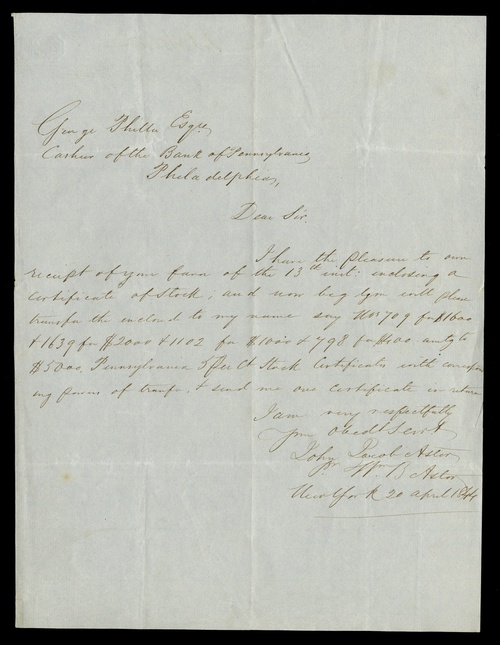 George Esqre
Cashier of the Bank of Pennsylvania
Philadelphia,
Dear Sir.
I have the pleasure to own
receipt of your favor of the 13th inst: inclosing a
Certificate of Stock, and now beg you will please
transfer the inclosed to my name say Nos 1709 for
& 1639 for $2000 & 1102 for $1000 & 798 for $400
$5000, Pennsylvania 5 per Ct Stock Certificates with
ing powers of & send me one certificate in return
I am very respectfully
your Obedt Servt
John Jacob Astor
pr Wm B Astor
New York 20 April 1844